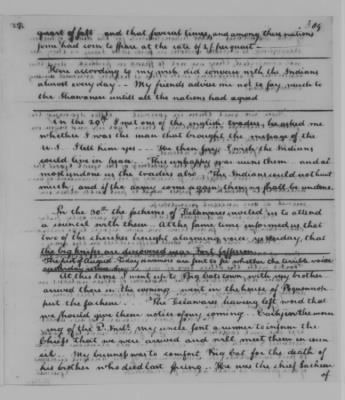 quart of salt and that several times, and among these nations
some had corn to spare at the rate of 2/ per quart —
Here according to my wish did converse with the Indians
almost every day -- My friends advise me not to say much to
the Shawanese until all the nations had agreed
On the 29th I met one of the english traders, he asked me
whether I was the man that brought the message of the
U.S. I tell him yes -- He then says I wish the Indians
could live in peace. This unhappy war ruins them and al
most undone us the traders also The Indians could not hunt
much, and if the army come again, they shall be undone.
In the 30th the sachems of Delawares invited us to attend
a council with them At the same time informed us that
two of the Cherokees brought alarming voice yesterday, that
the big knifes are discovered near Fort Jefferson
The first of August Today runners are sent to us
till this time I went up to Big Cats town, with my brother
arrived there in the evening went in the house of
but the sachem. The Delawares having left word that
we should give them notice of our coming. Early in the morn
ing of the my uncle sent a runner to inform the
Chiefs that we were arrived and will meet them in coun
cil. My business was to comfort Big Cat for the death of
his brother who died last spring. He was the chief Sachem
of